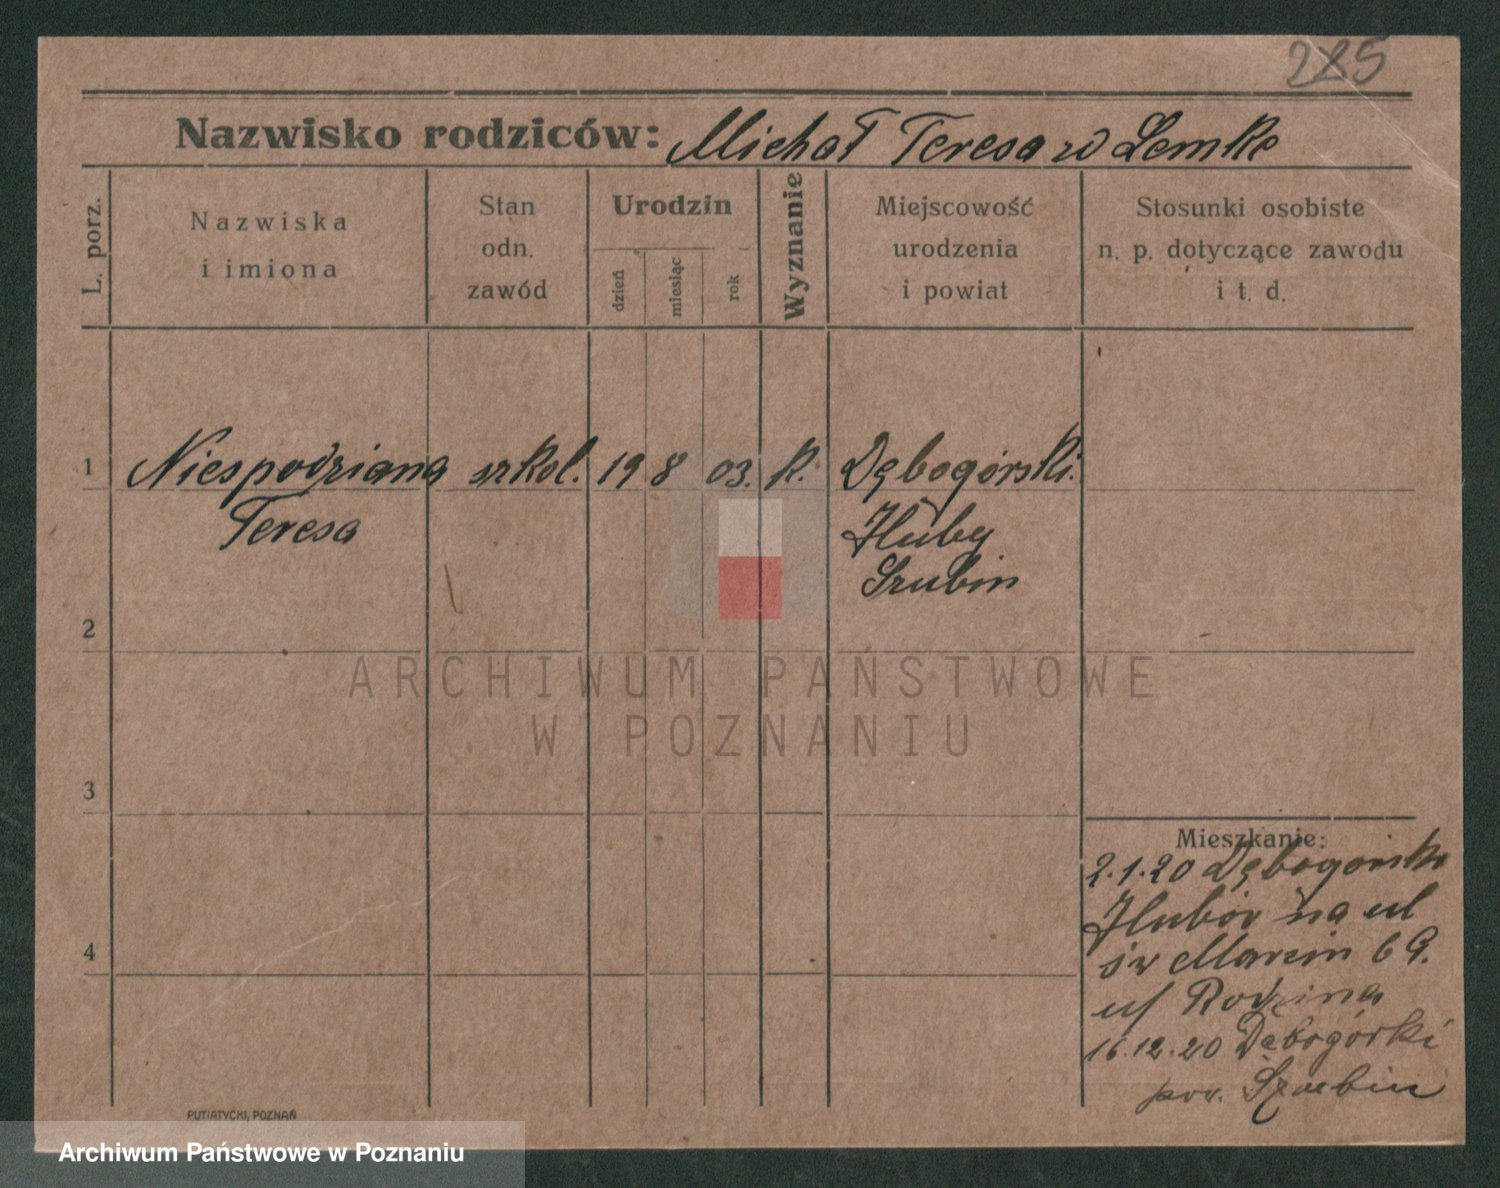 225
Nazwisko rodziców: Michał Teresa w Lemke
L. porz.
Nazwiska
i imiona
Stan
odn.
zawód
Urodzin
dzień
miesiąc
rok
Wyznanie
Miejscowość
urodzenia
i powiat
Stosunki osobiste
n. p. dotyczące zawodu
i t. d.
1 Niespodziana szkol. 19 8 03. k. Dębogórski.
Teresa Huby
Szubin
2
3
4
Mieszkanie:
2.1.20 Dębogorsko
Hubór na ul
św Marcin 69.
u/ Rodzina
16.12.20 Dębogórki
pow. Szubin
PUTIATYCKI, POZNAŃ
ARCHIWUM PAŃSTWOWE
W POZNANIU
Archiwum Państwowe w Poznaniu